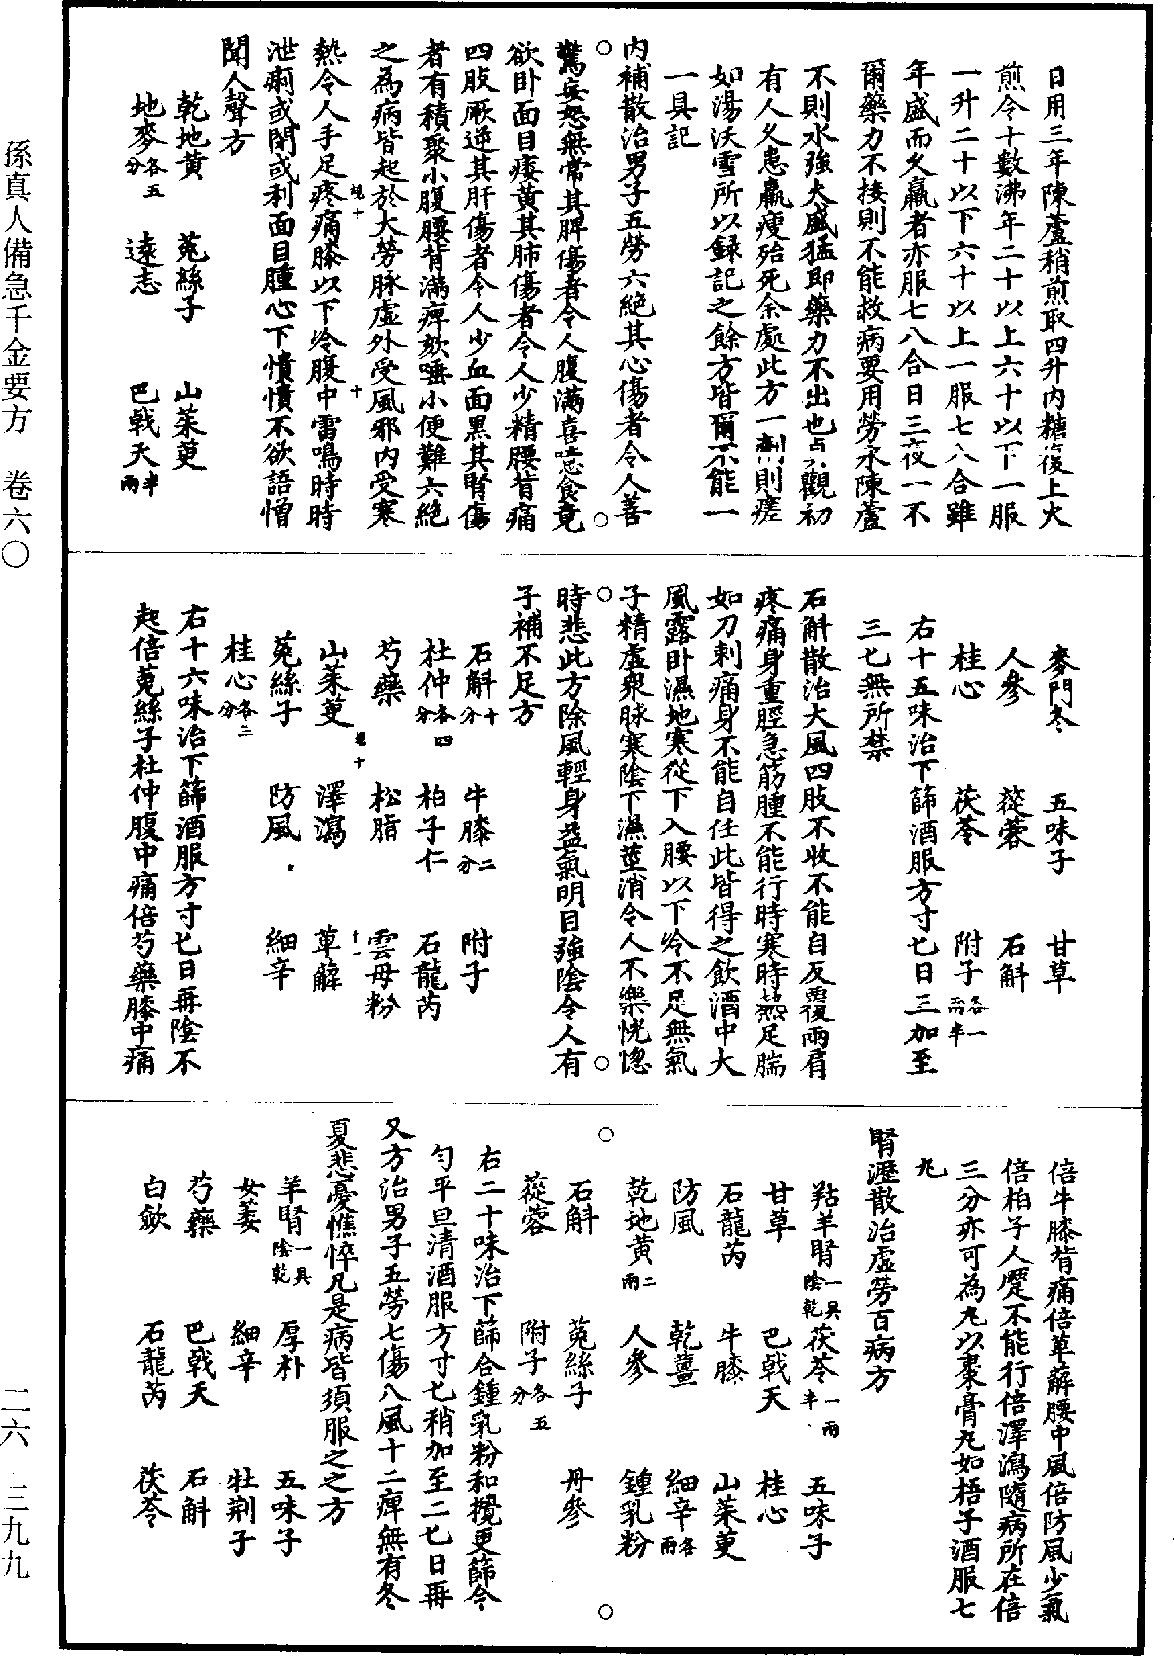 日用三年陳蘆稍煎取四升內糖復上火
煎令十數沸年二十以上六十以下一服
一升二十以下六十以上一服七八合雖
年盛而久羸者亦服七八合日三夜一不
爾藥力不接則不能救病要用勞水陳蘆
不則水強火盛猛即藥力不出也貞觀初
有人久患羸瘦殆死余處此方一劑則瘥
如湯沃雪所以錄記之餘方皆爾不能一
一具記
內補散治男子五勞六絕其心傷者令人善
驚妄怒無常其脾傷者令人腹滿喜噫食竟
欲卧面目痿黃其肺傷者令人少精腰背痛
四肢厥逆其肝傷者令人少血面黑其腎傷
者有積聚小腹腰背滿痺欬唾小便難六絕
之為病皆起於大勞脉虛外受風邪內受寒
熱令人手足疼痛膝以下冷腹中雷鳴時時
泄痢或閉或利面目腫心下憒憒不欲語憎
聞人聲方
乾地黃 菟絲子 山茱萸
地麥各五分 遠志 巴戟天半兩
麥門冬 五味子 甘草
人參 蓯蓉 石斛
桂心 茯苓 附子各一兩半
右十五味治下篩酒服方寸匕日三加至
三匕無所禁
石斛散治大風四肢不收不能自反覆兩肩
疼痛身重脛急筋腫不能行時寒時熱足腨
如刀刺痛身不能自任此皆得之飲酒中大
風露卧濕地寒從下入腰以下冷不足無氣
子精虛衆脉寒陰下濕莖消令人不樂恍惚
時悲此方除風輕身益氣明目強陰令人有
子補不足方
石斛十分 牛膝二分 附子
杜仲各四分 柏子仁 石龍芮
芍藥 松脂 雲母粉
山茱萸 澤瀉 萆薢
菟絲子 防風 細辛
桂心各三分
右十六味治下篩酒服方寸匕日再陰不
起倍菟絲子杜仲腹中痛倍芍藥膝中痛
倍牛膝背痛倍萆薢腰中風倍防風少氣
倍柏子人蹷不能行倍澤瀉隨病所在倍
三分亦可為丸以棗膏丸如梧子酒服七
丸
腎瀝散治虛勞百病方
羖羊腎一具陰乾 茯苓一兩半 五味子
甘草 巴戟天 桂心
石龍芮 牛膝 山茱萸
防風 乾薑 細辛各兩
乾地黃二兩 人參 鍾乳粉
石斛 菟絲子 丹參
蓯蓉 附子各五分
右二十味治下篩合鍾乳粉和攪更篩令
勻平旦清酒服方寸匕稍加至二匕日再
又方治男子五勞七傷八風十二痺無有冬
夏悲憂憔悴凡是病皆須服之之方
羊腎一具陰乾 厚朴 五味子
女萎 細辛 牡荊子
芍藥 巴戟天 石斛
白歛 石龍芮 茯苓
孫真人備急千金要方 卷六〇 二六 三九九